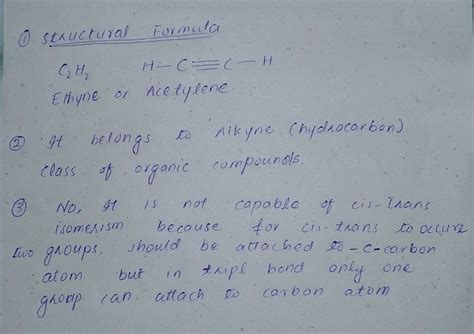 ① Structural Formula
C2H2 H-C≡C-H
Ethyne or Acetylene
② It belongs to Alkyne (hydrocarbon)
class of organic compounds.
③ No, It is not capable of cis-trans
isomerism because for cis-trans to occure
two groups should be attached to -C-carbon
atom but in tripl bond only one
group can attach to carbon atom